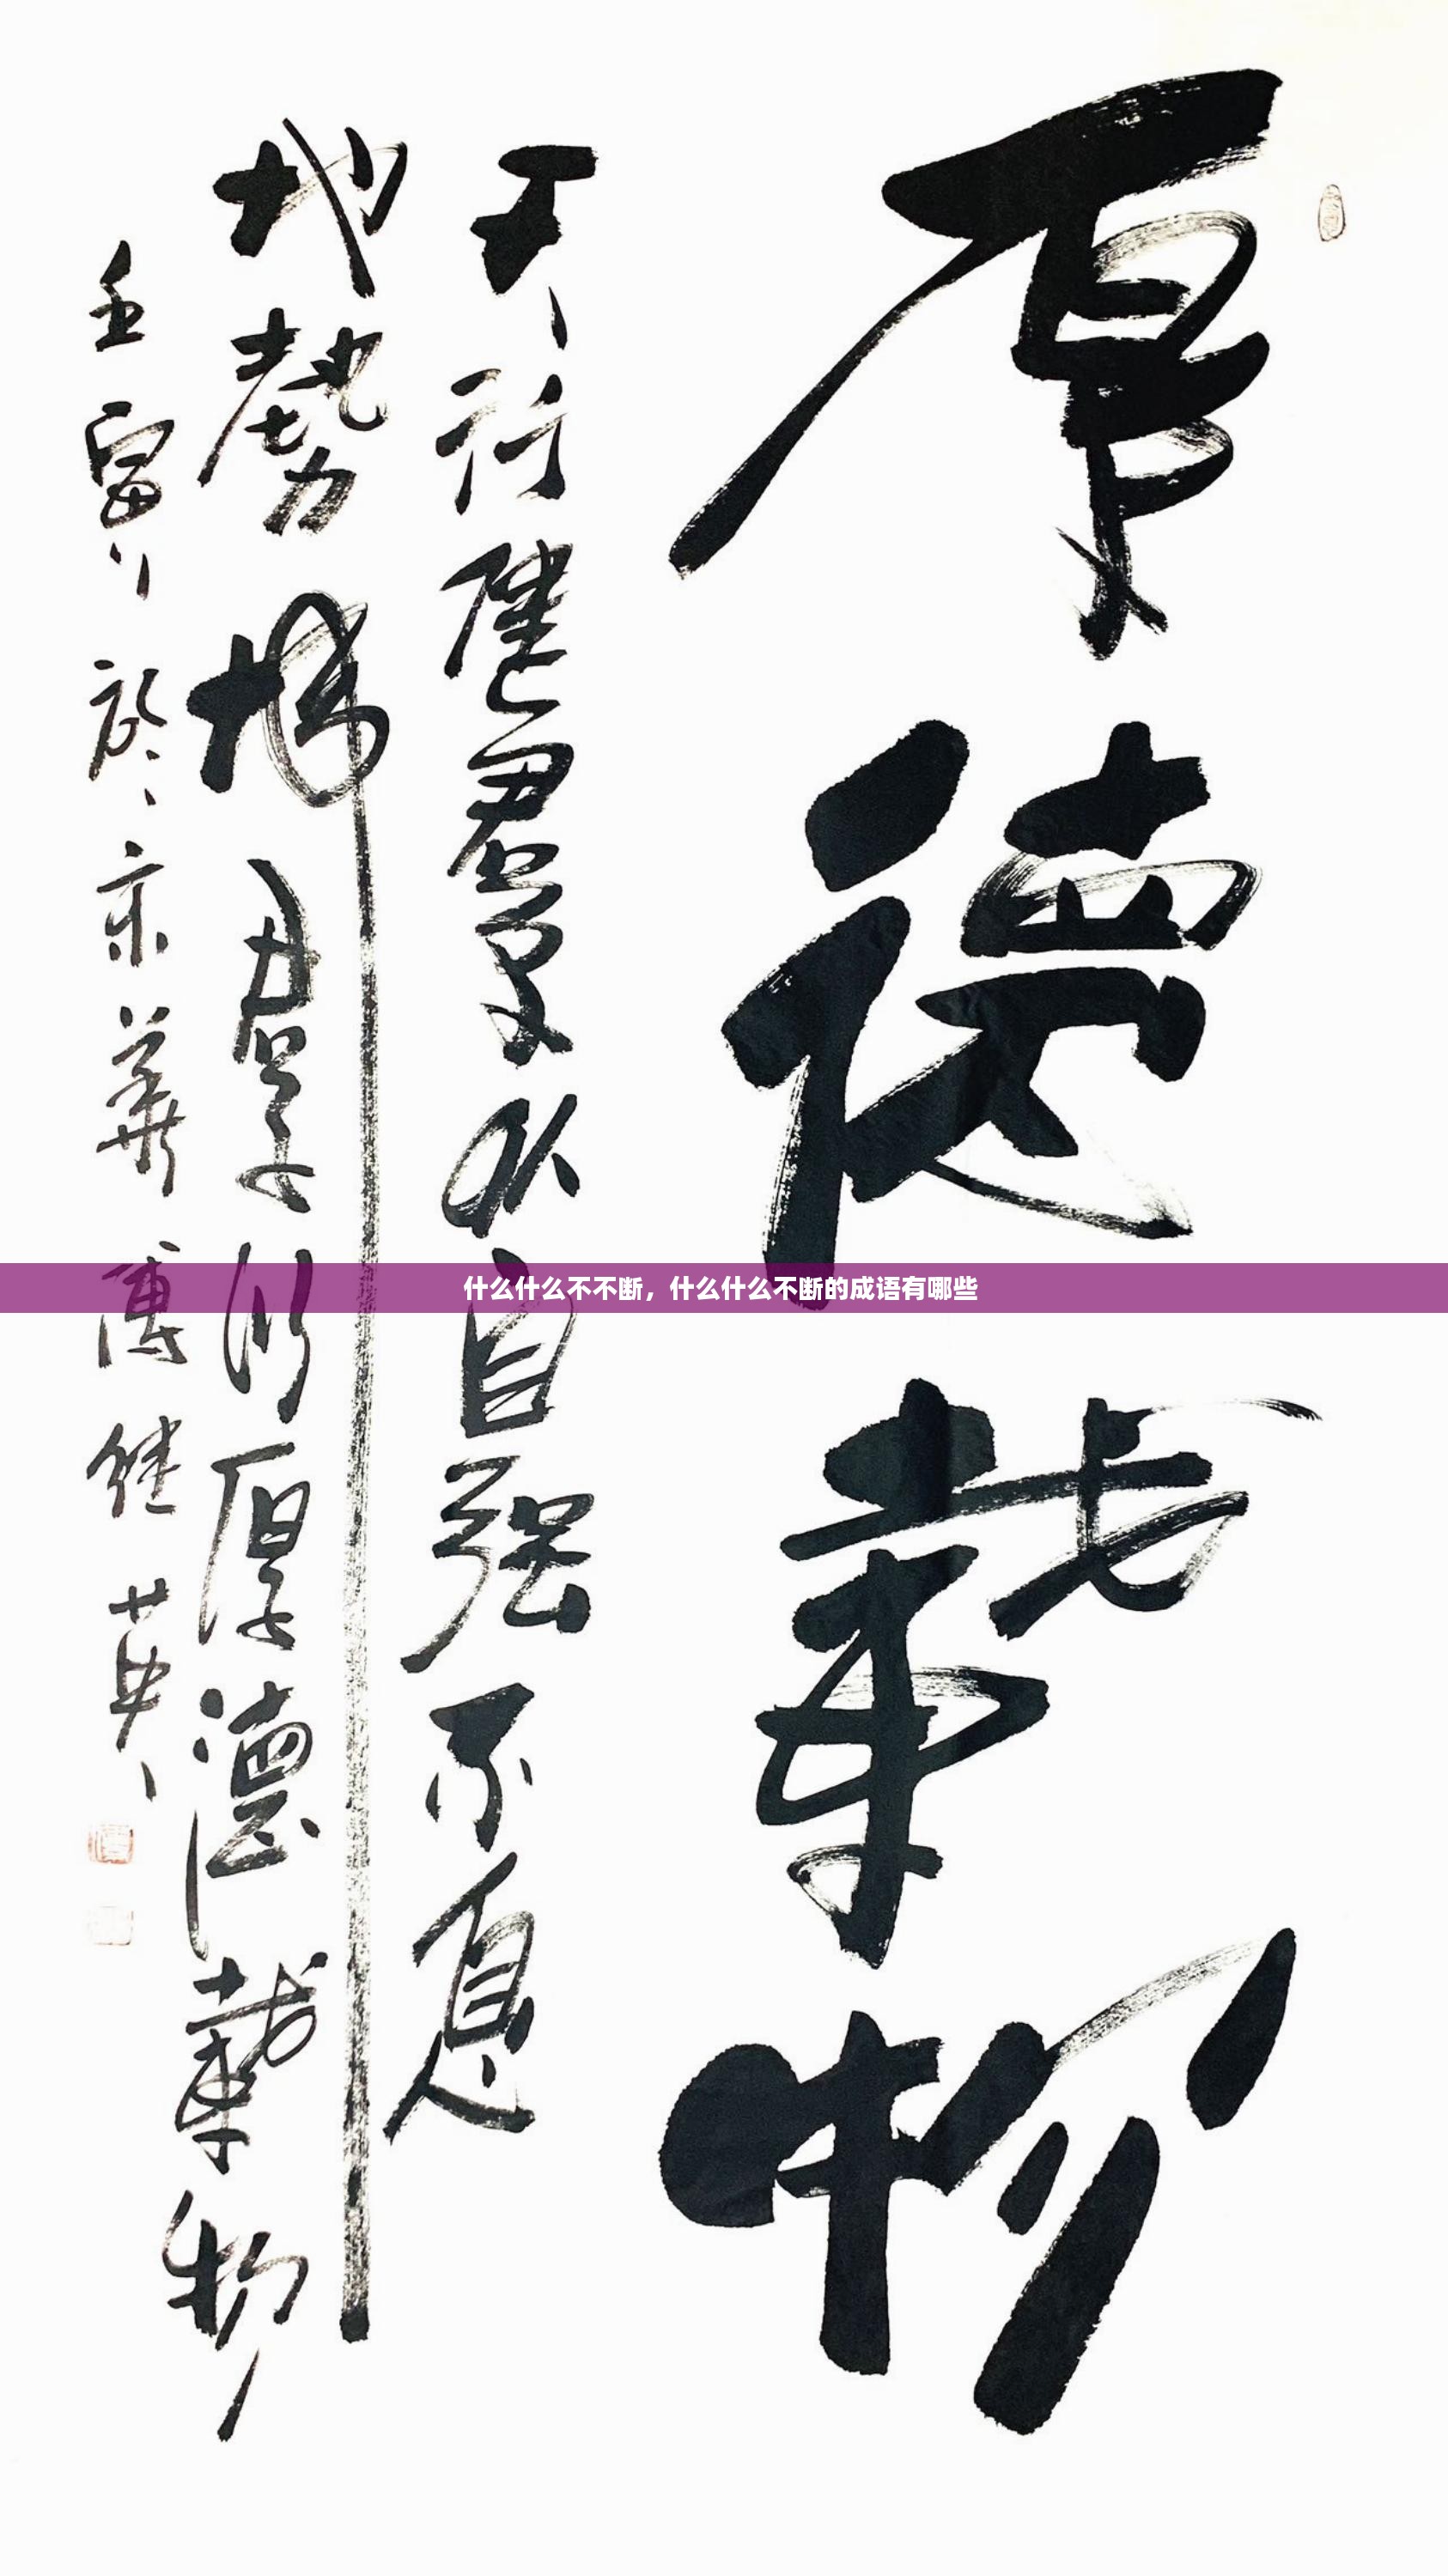 厚德載物
天行健君子以自强不息
地勢坤君子以厚德載物
壬寅於京華傅继英
什么什么不不断，什么什么不断的成语有哪些